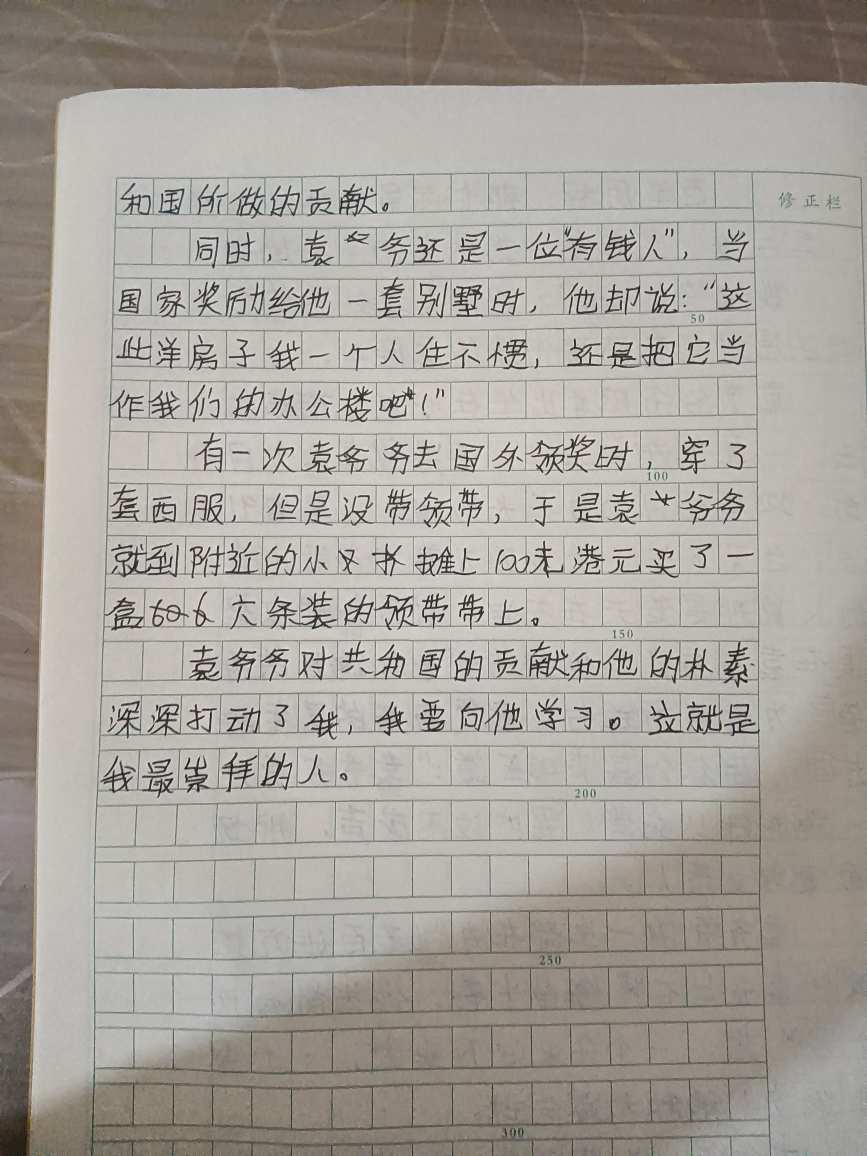 和国所做的贡献。
修正栏
同时，袁爷还是一位"有钱人"，当
国家奖励给他一套别墅时，他却说："这
50
些洋房子我一个人住不惯，还是把它当
作我们的办公楼吧！"
有一次袁爷爷去国外领奖时，穿了
100
套西服，但是没带领带，于是袁爷爷
就到附近的小摊上100来港元买了一
盒六条装的领带带上。
150
袁爷爷对共和国的贡献和他的朴素
深深打动了我，我要向他学习。这就是
我最崇拜的人。
200
250
300